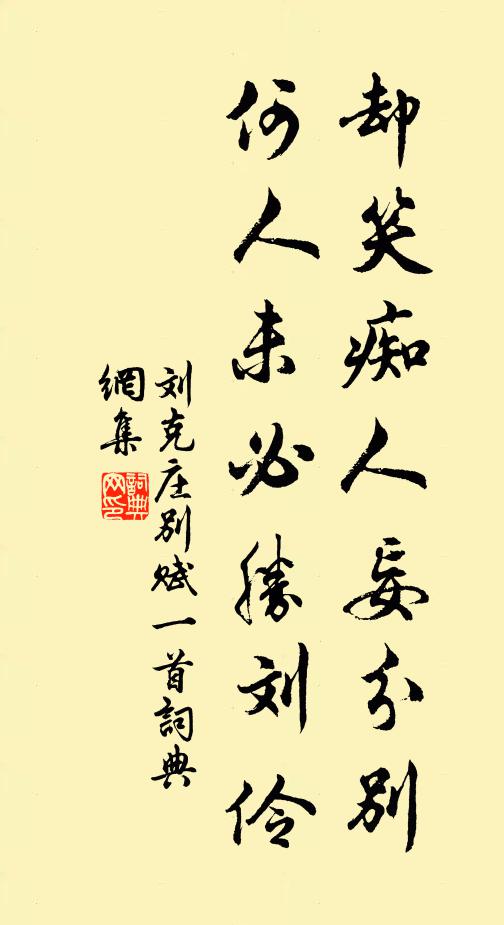 却笑痴人妄分别
何人未必勝刘伶
刘克庄别赋一首詞典
網集
詞典
网印